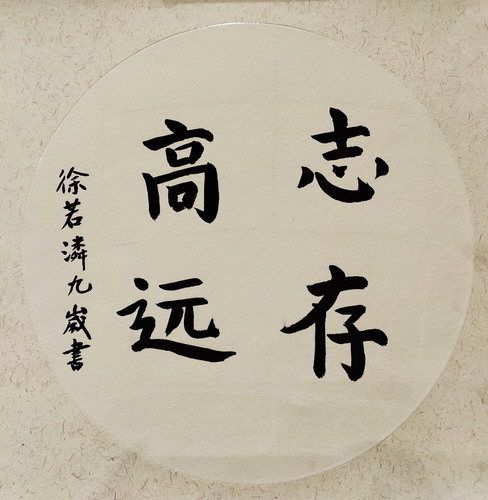 志存
高远
徐若潾九歲書